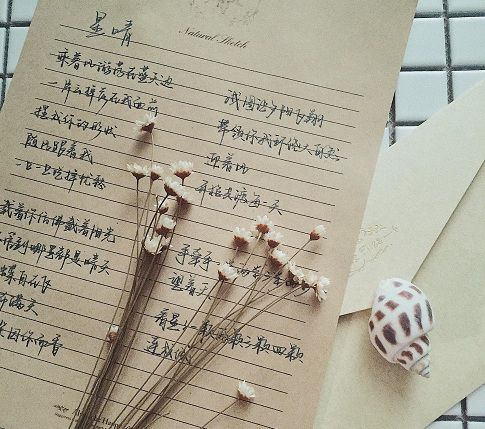 Natural Sketch
星晴
乘着风游荡在蓝天边
一片云掉落在我面前
捏成你的形状
随风跟着我
一口一口吃掉忧愁
载着你仿佛载着阳光
管到哪里都是晴天
蝶自在飞
布满天
朵因你而香
试图让夕阳飞翔
带领你我环绕大自然
迎着风
开始共渡每一天
手牵手一步两步三步
望着天
看星星一颗两颗三颗四颗
连成线